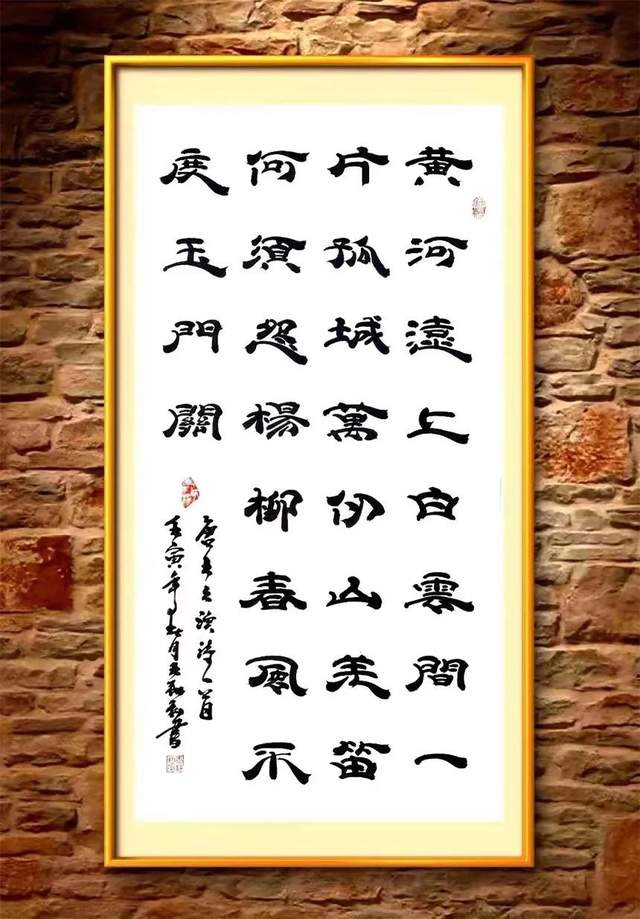 黃河遠上白雲間一
片孤城萬仞山羌笛
何須怨楊柳春風不
度玉門關
唐王之渙詩一首
壬寅年月書